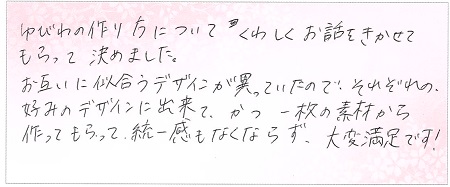 ゆびわの作り方について くわしく お話をきかせて
もらって 決めました。
お互いに似合うデザインが異っていたので、それぞれの、
好みのデザインに出来て、かつ 一枚の素材から
作ってもらって、統一感もなくならず、大変満足です!